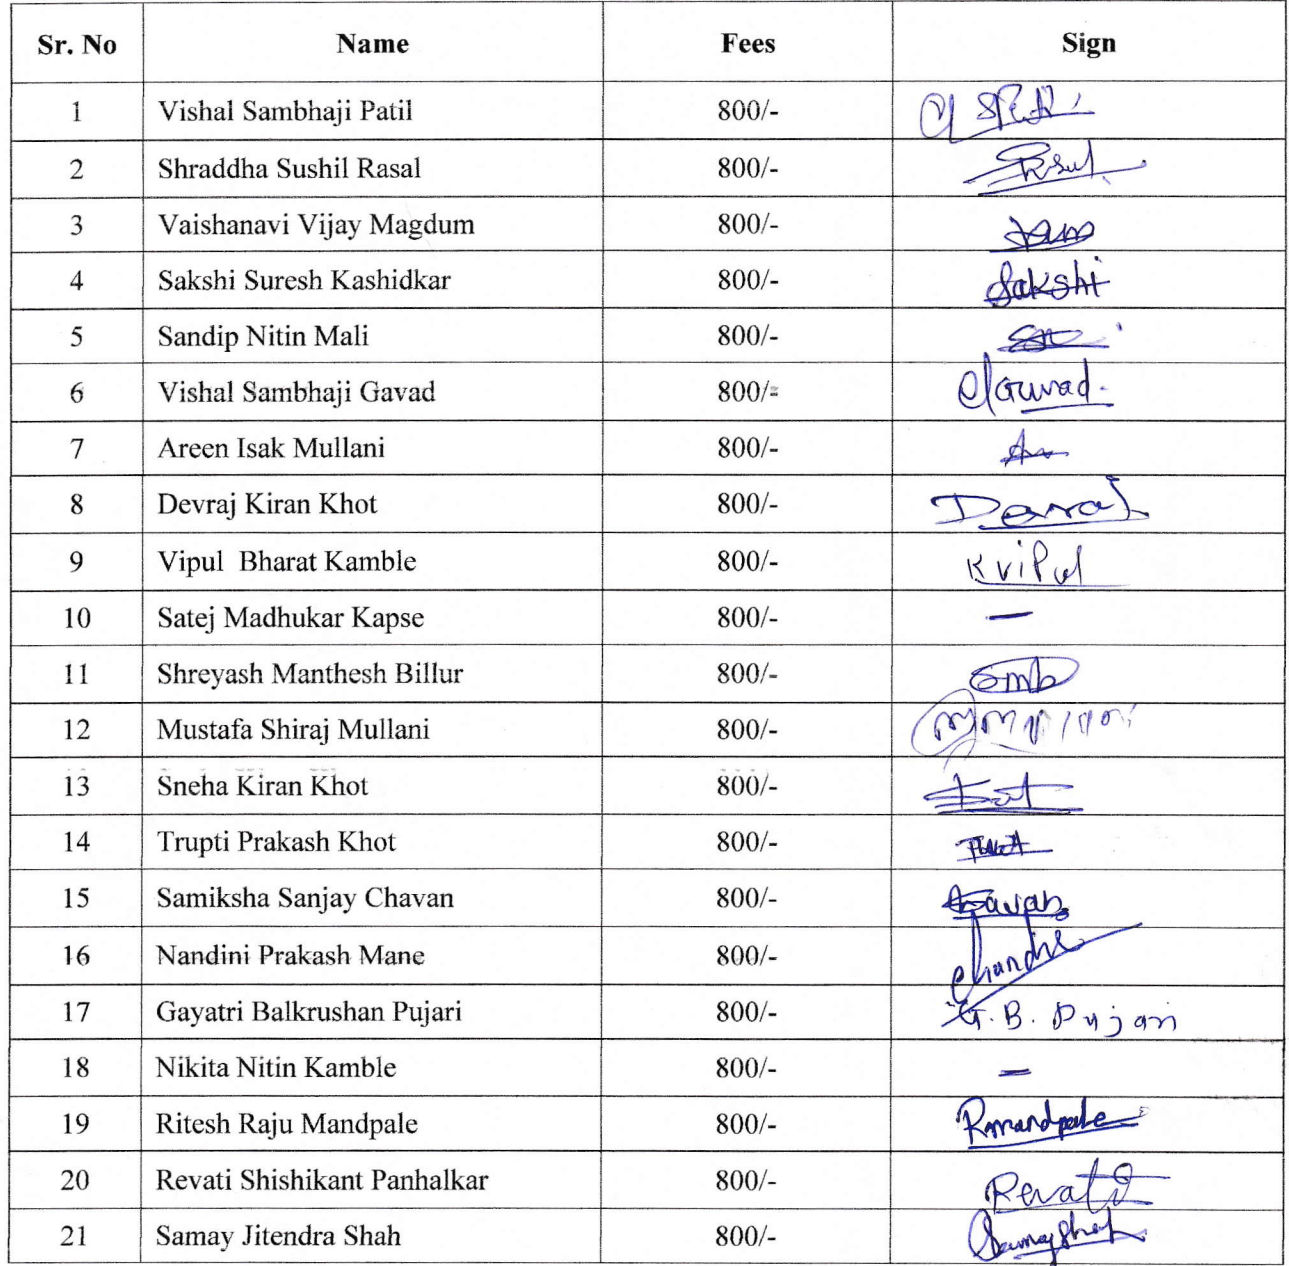 Sr. No Name Fees Sign
1 Vishal Sambhaji Patil 800/-
2 Shraddha Sushil Rasal 800/- Rsal
3 Vaishanavi Vijay Magdum 800/-
4 Sakshi Suresh Kashidkar 800/- Sakshi
5 Sandip Nitin Mali 800/-
6 Vishal Sambhaji Gavad 800/-
7 Areen Isak Mullani 800/-
8 Devraj Kiran Khot 800/- Devraj
9 Vipul Bharat Kamble 800/- K vipul
10 Satej Madhukar Kapse 800/- —
11 Shreyash Manthesh Billur 800/- Smb
12 Mustafa Shiraj Mullani 800/-
13 Sneha Kiran Khot 800/-
14 Trupti Prakash Khot 800/-
15 Samiksha Sanjay Chavan 800/-
16 Nandini Prakash Mane 800/-
17 Gayatri Balkrushan Pujari 800/- G. B. Pujari
18 Nikita Nitin Kamble 800/- —
19 Ritesh Raju Mandpale 800/- Rmandpale
20 Revati Shishikant Panhalkar 800/- Revati
21 Samay Jitendra Shah 800/- Samayshah